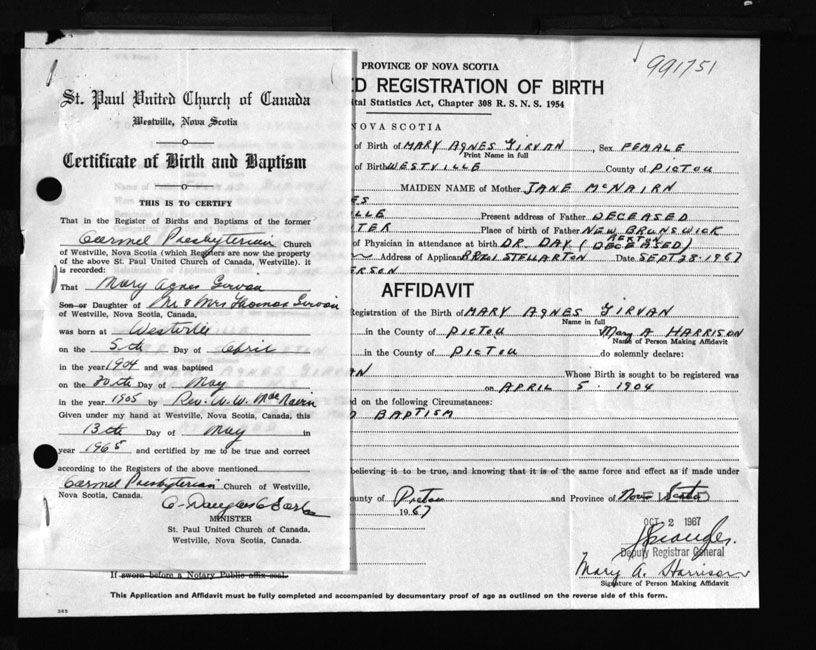 St. Paul United Church of Canada
Westville, Nova Scotia
Certificate of Birth and Baptism
THIS IS TO CERTIFY
That in the Register of Births and Baptisms of the former
Carmel Presbyterian Church
of Westville, Nova Scotia (which Registers are now the property
of the above St. Paul United Church of Canada, Westville). it
is recorded:
That Mary Agnes Girvan
Son or Daughter of Mr & Mrs Thomas Girvan
of Westville, Nova Scotia, Canada,
was born at Westville
on the 5th Day of April in
in the year 1904 and was baptised
on the 30th Day of May
in the year 1905 by Rev. W. W. MacNairn
Given under my hand at Westville, Nova Scotia, Canada, this
13th Day of May in
year 1965 and certified by me to be true and correct
according to the Registers of the above mentioned
Carmel Presbyterian Church of Westville,
Nova Scotia, Canada.
MINISTER
St. Paul United Church of Canada,
Westville, Nova Scotia, Canada.
PROVINCE OF NOVA SCOTIA
991751
D REGISTRATION OF BIRTH
ital Statistics Act, Chapter 308 R. S. N. S. 1954
NOVA SCOTIA
of Birth of MARY AGNES GIRVAN, Sex FEMALE
Print Name in full
of Birth WESTVILLE County of PICTOU
MAIDEN NAME of Mother JANE McNAIRN
ES
LLE Present address of Father DECEASED
TER Place of birth of Father NEW BRUNSWICK
of Physician in attendance at birth DR. DAY (DECEASED)
Address of Applicant STELLARTON Date SEPT 28. 1967
ERSON
AFFIDAVIT
Registration of the Birth of MARY AGNES GIRVAN
Name in full
in the County of PICTOU Mary A HARRISON
Name of Person Making Affidavit
in the County of PICTOU do solemnly declare:
N Whose Birth is sought to be registered was
on APRIL 5. 1904
d on the following Circumstances:
BAPTISM
believing it to be true, and knowing that it is of the same force and effect as if made under
ounty of Pictou and Province of Nova Scotia
1967
OCT 2 1967
Deputy Registrar General
Mary A. Harrison
Signature of Person Making Affidavit
If sworn before a Notary Public affix seal.
This Application and Affidavit must be fully completed and accompanied by documentary proof of age as outlined on the reverse side of this form.